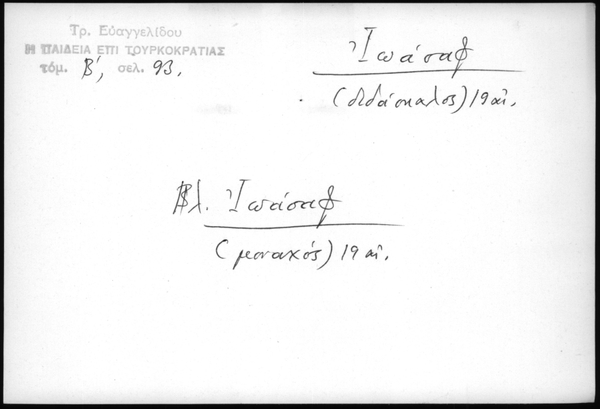 Τρ. Εὐαγγελίδου
Η ΠΑΙΔΕΙΑ ΕΠΙ ΤΟΥΡΚΟΚΡΑΤΙΑΣ
τόμ. Β΄, σελ. 93.
Ἰωάσαφ
(διδάσκαλος) 19 αἰ.
Βλ. Ἰωάσαφ
(μοναχός) 19 αἰ.